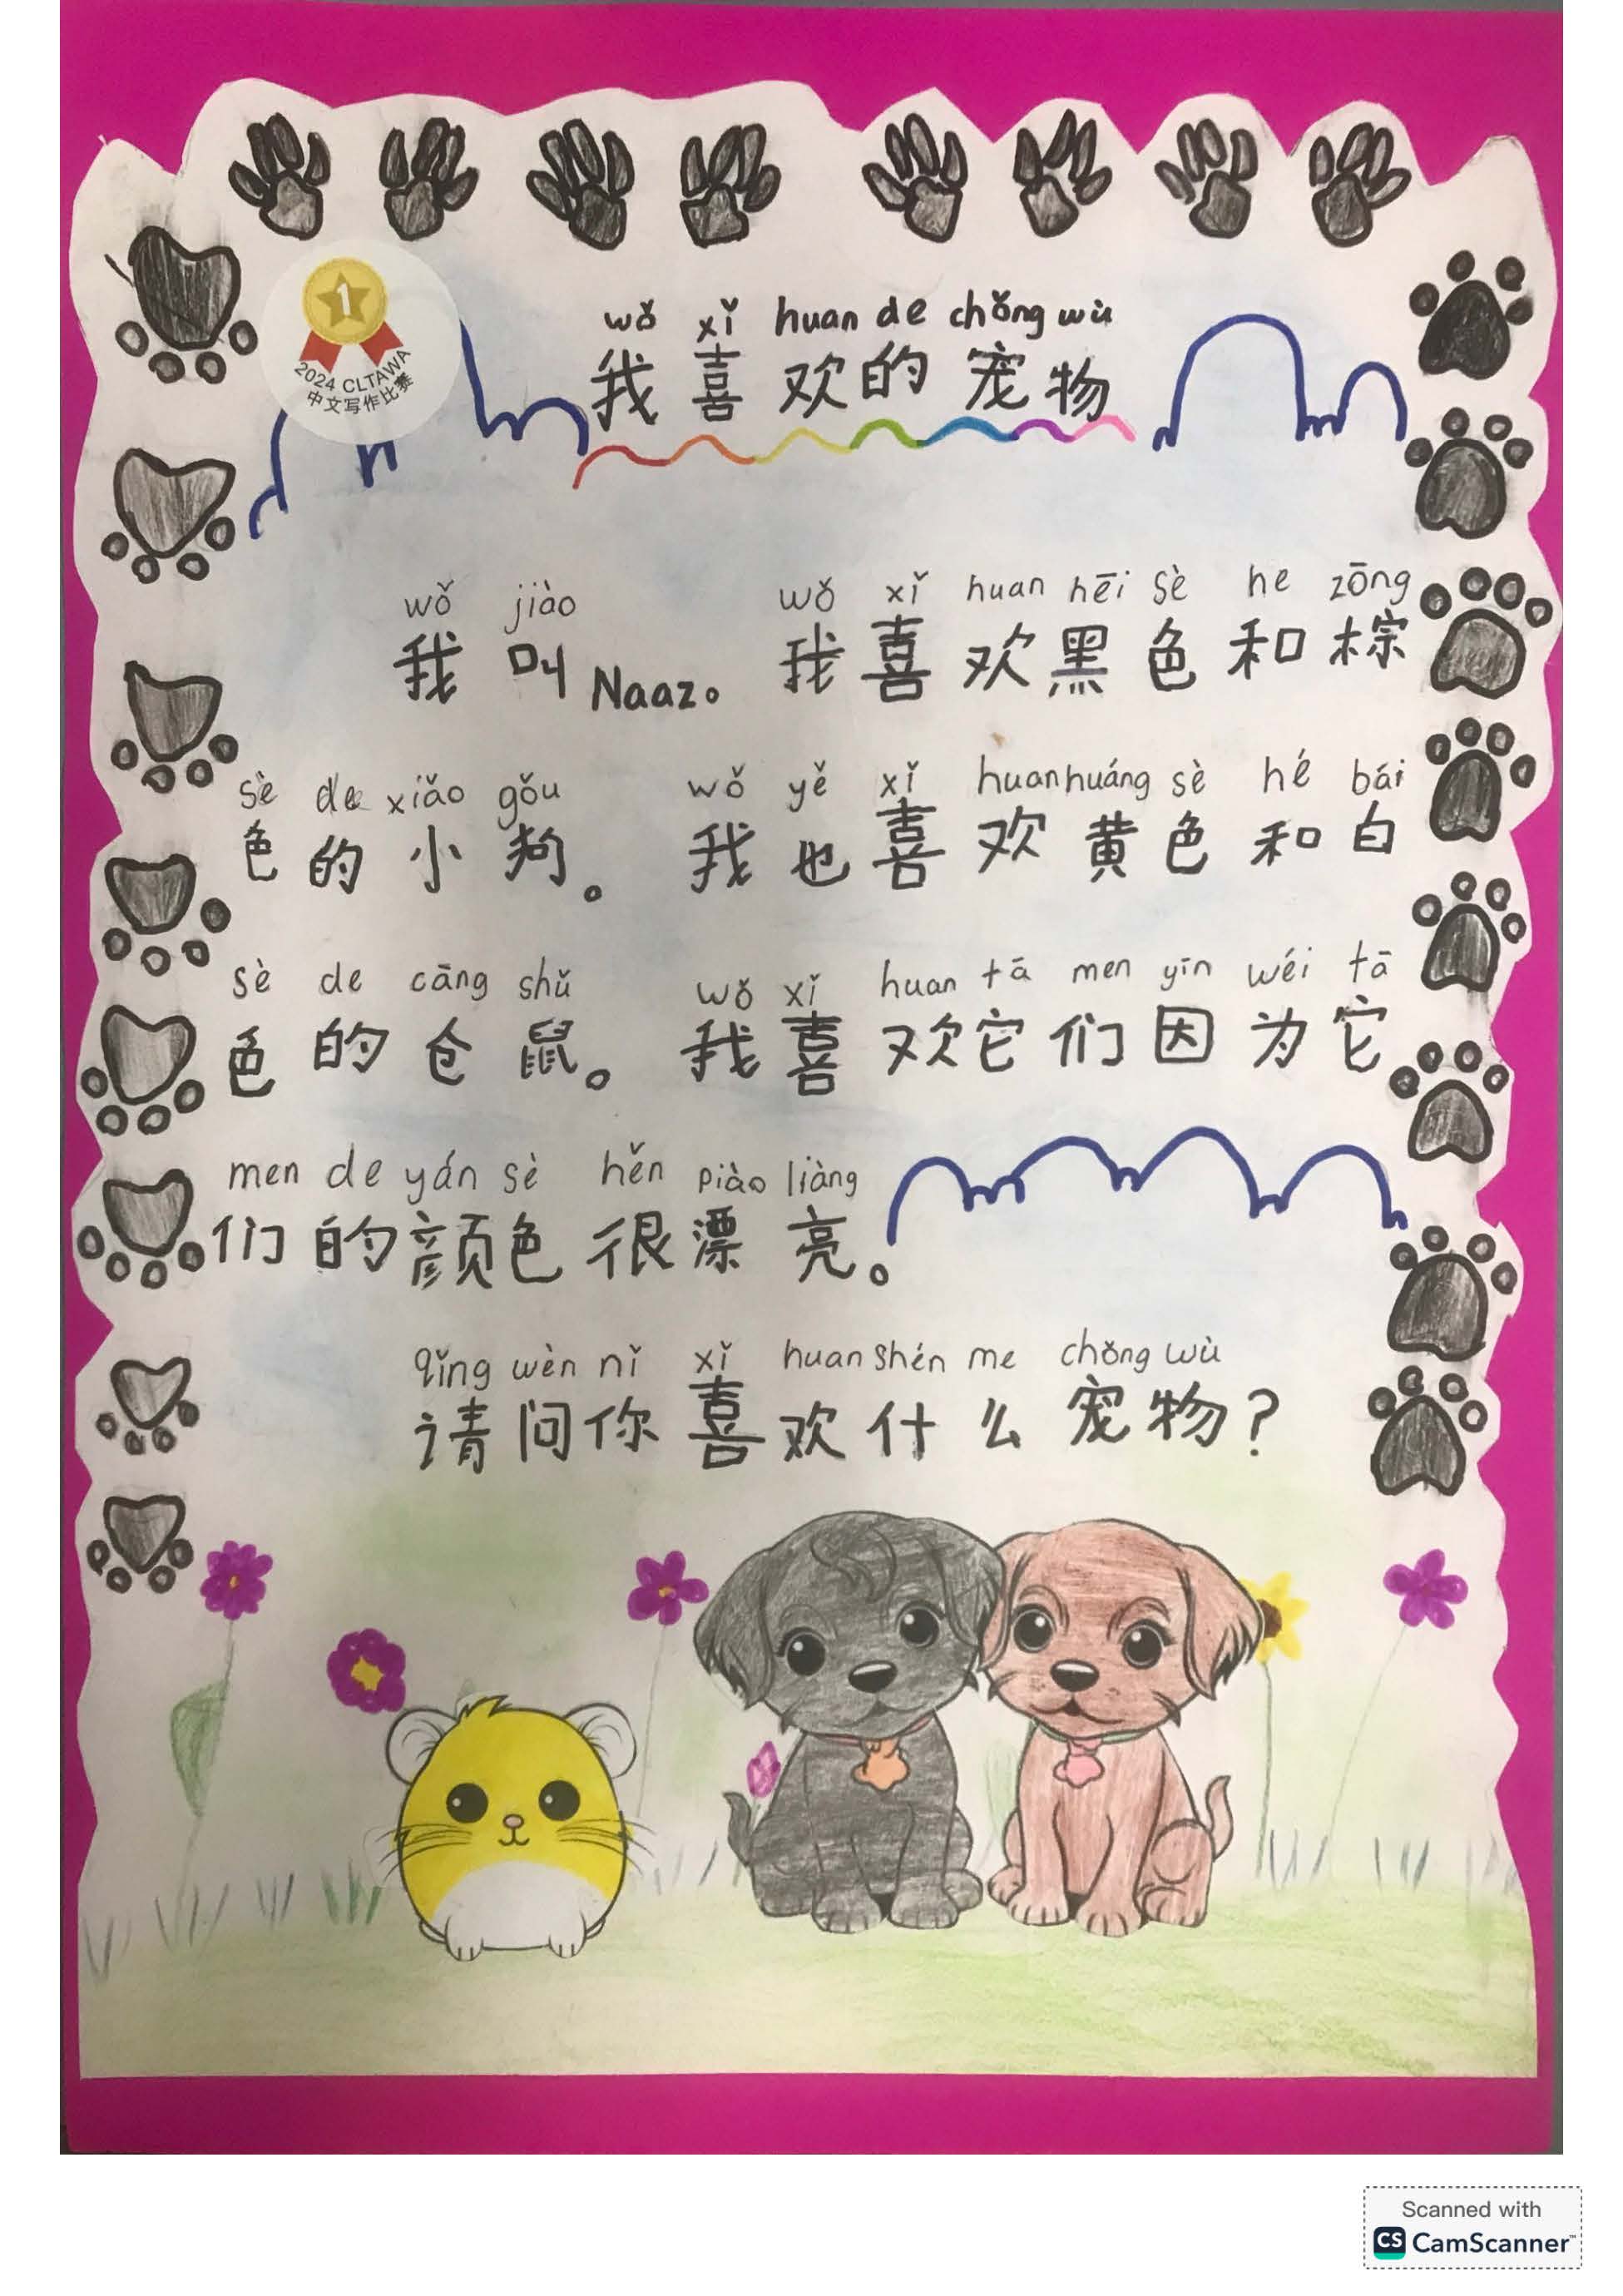 2024 CLTAWA
中文写作比赛
1
wǒ xǐ huan de chǒng wù
我喜欢的宠物
wǒ jiào wǒ xǐ huan hēi sè he zōng
我叫Naaz。我喜欢黑色和棕
sè de xiǎo gǒu wǒ yě xǐ huan huáng sè hé bái
色的小狗。我也喜欢黄色和白
sè de cāng shǔ wǒ xǐ huan tā men yīn wéi tā
色的仓鼠。我喜欢它们因为它
men de yán sè hěn piào liàng
们的颜色很漂亮。
qǐng wèn nǐ xǐ huan shén me chǒng wù
请问你喜欢什么宠物?
Scanned with
CS CamScanner™